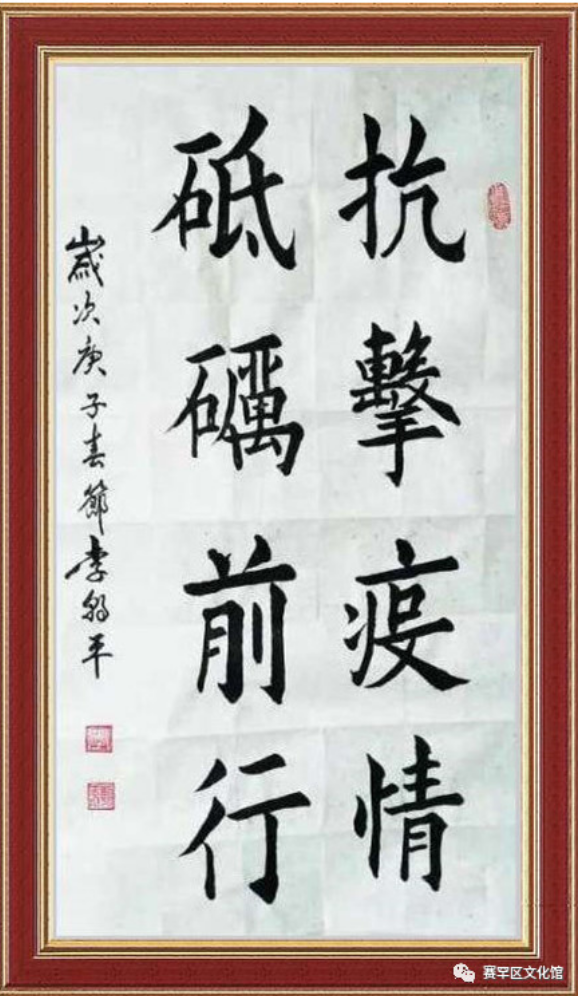 抗擊疫情
砥礪前行
歲次庚子春節李弱平
赛罕区文化馆